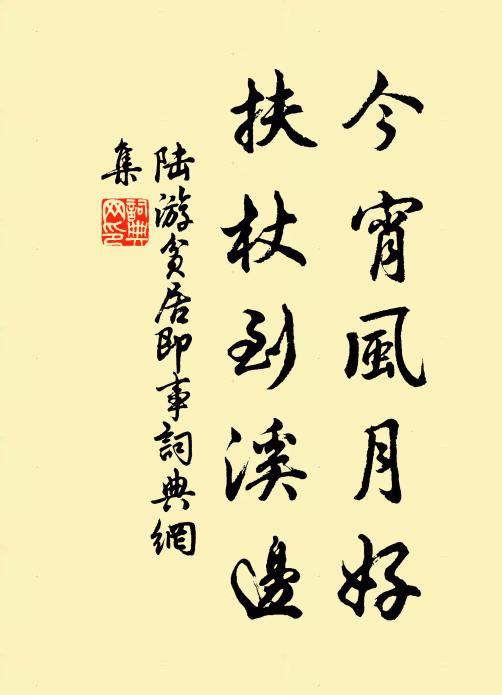 今宵風月好
扶杖到溪邊
陸游貧居即事詞典網
集
詞典
网印